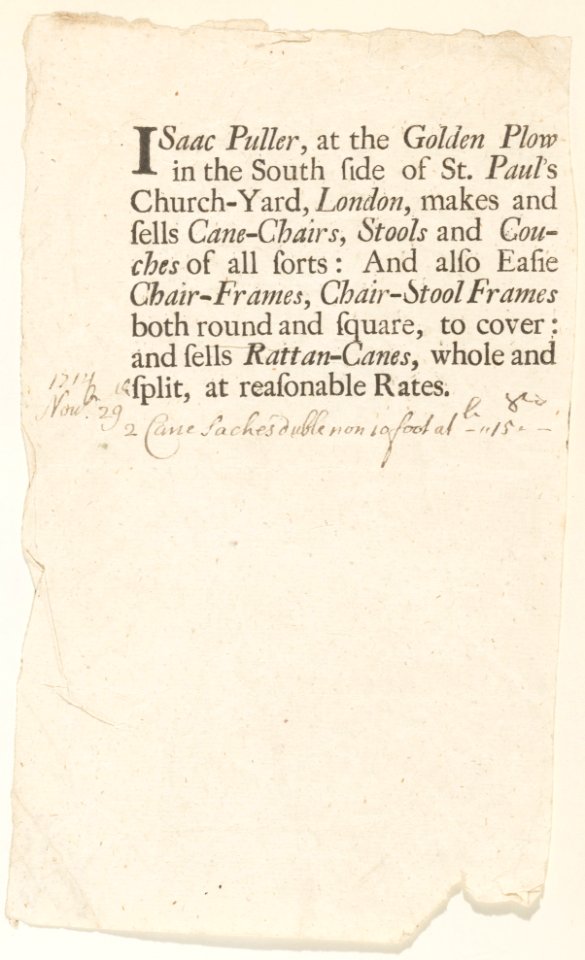 ISaac Puller, at the Golden Plow
in the South ſide of St. Paul's
Church-Yard, London, makes and
ſells Cane-Chairs, Stools and Cou-
ches of all ſorts: And alſo Eaſie
Chair-Frames, Chair-Stool Frames
both round and ſquare, to cover:
and ſells Rattan-Canes, whole and
ſplit, at reaſonable Rates.
Nov. 29
2 Cane Saches duble non 10 foot at - " 15 " -